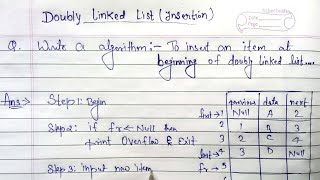 Doubly Linked List (Insertion)
Q. Write a algorithm:- To insert an item at
beginning of doubly linked list....
Ans→ Step1: Begin
Step2: if fr ← Null then
print Overflow & Exit
Step3: input new item
previous data next
first→ 1 Null A 2
2 1 B 3
3 2 C 4
last→ 4 3 D Null
fr→ 5